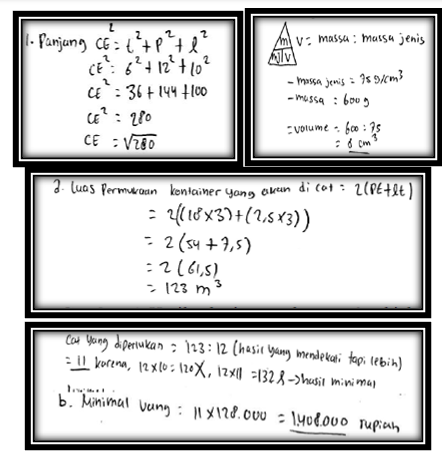 1. Panjang CE² = t² + P² + l²
CE² = 6² + 12² + 10²
CE² = 36 + 144 + 100
CE² = 280
CE = √280
m
mJ V
V = massa : massa jenis
- massa jenis = 75 g/cm³
- massa : 600 g
= volume = 600 : 75
= 8 cm³
2. Luas Permukaan kontainer yang akan di cat = 2(Pt + lt)
= 2((18 x 3) + (2,5 x 3))
= 2 (54 + 7,5)
= 2 (61,5)
= 123 m³
Cat yang diperlukan = 123 : 12 (hasil yang mendekati tapi lebih)
= 11 karena, 12x10 = 120 X, 12x11 = 132 l → hasil minimal
b. Minimal uang : 11 x 128.000 = 1.408.000 rupiah